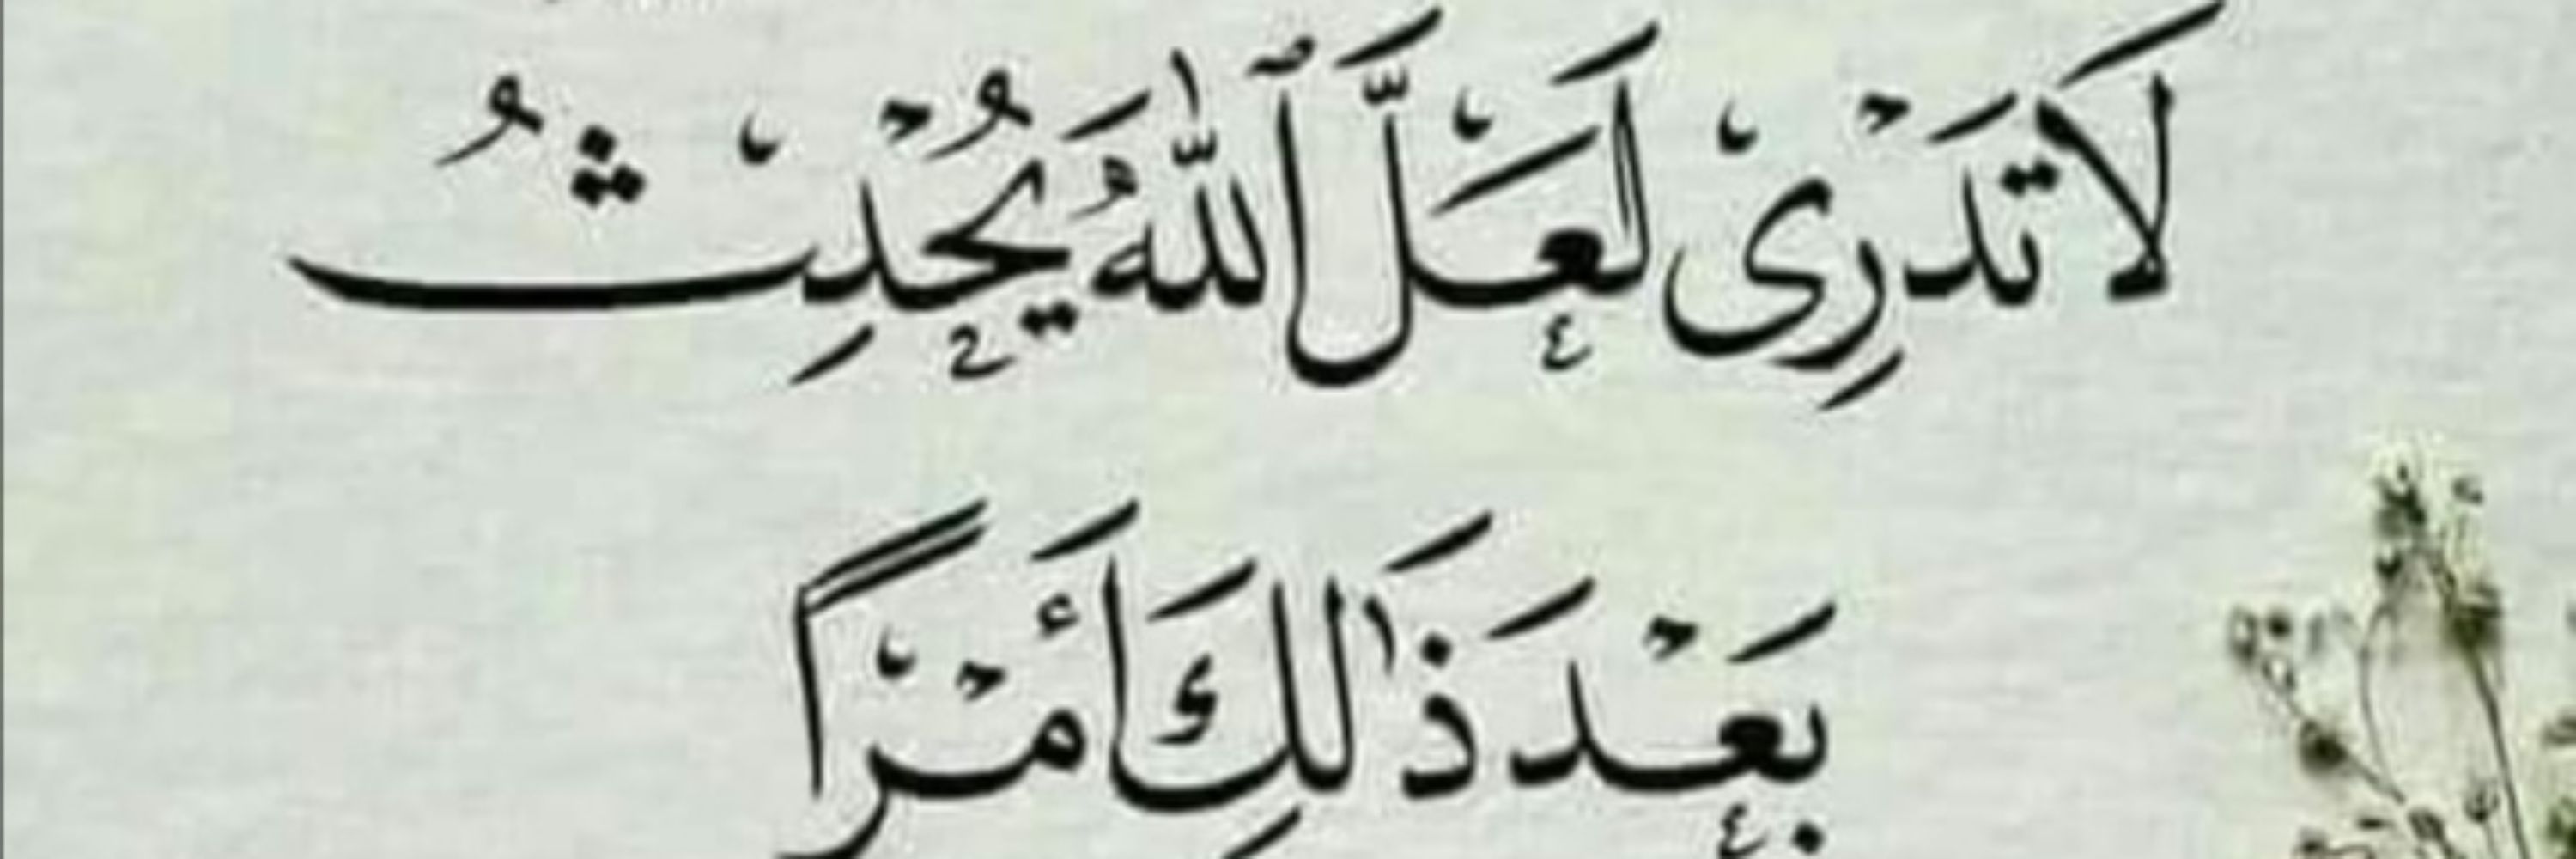 لَا تَدْرِىْ لَعَلَّ ٱللّٰهَ يُحْدِثُ
بَعْدَ ذَٰلِكَ أَمْرًا